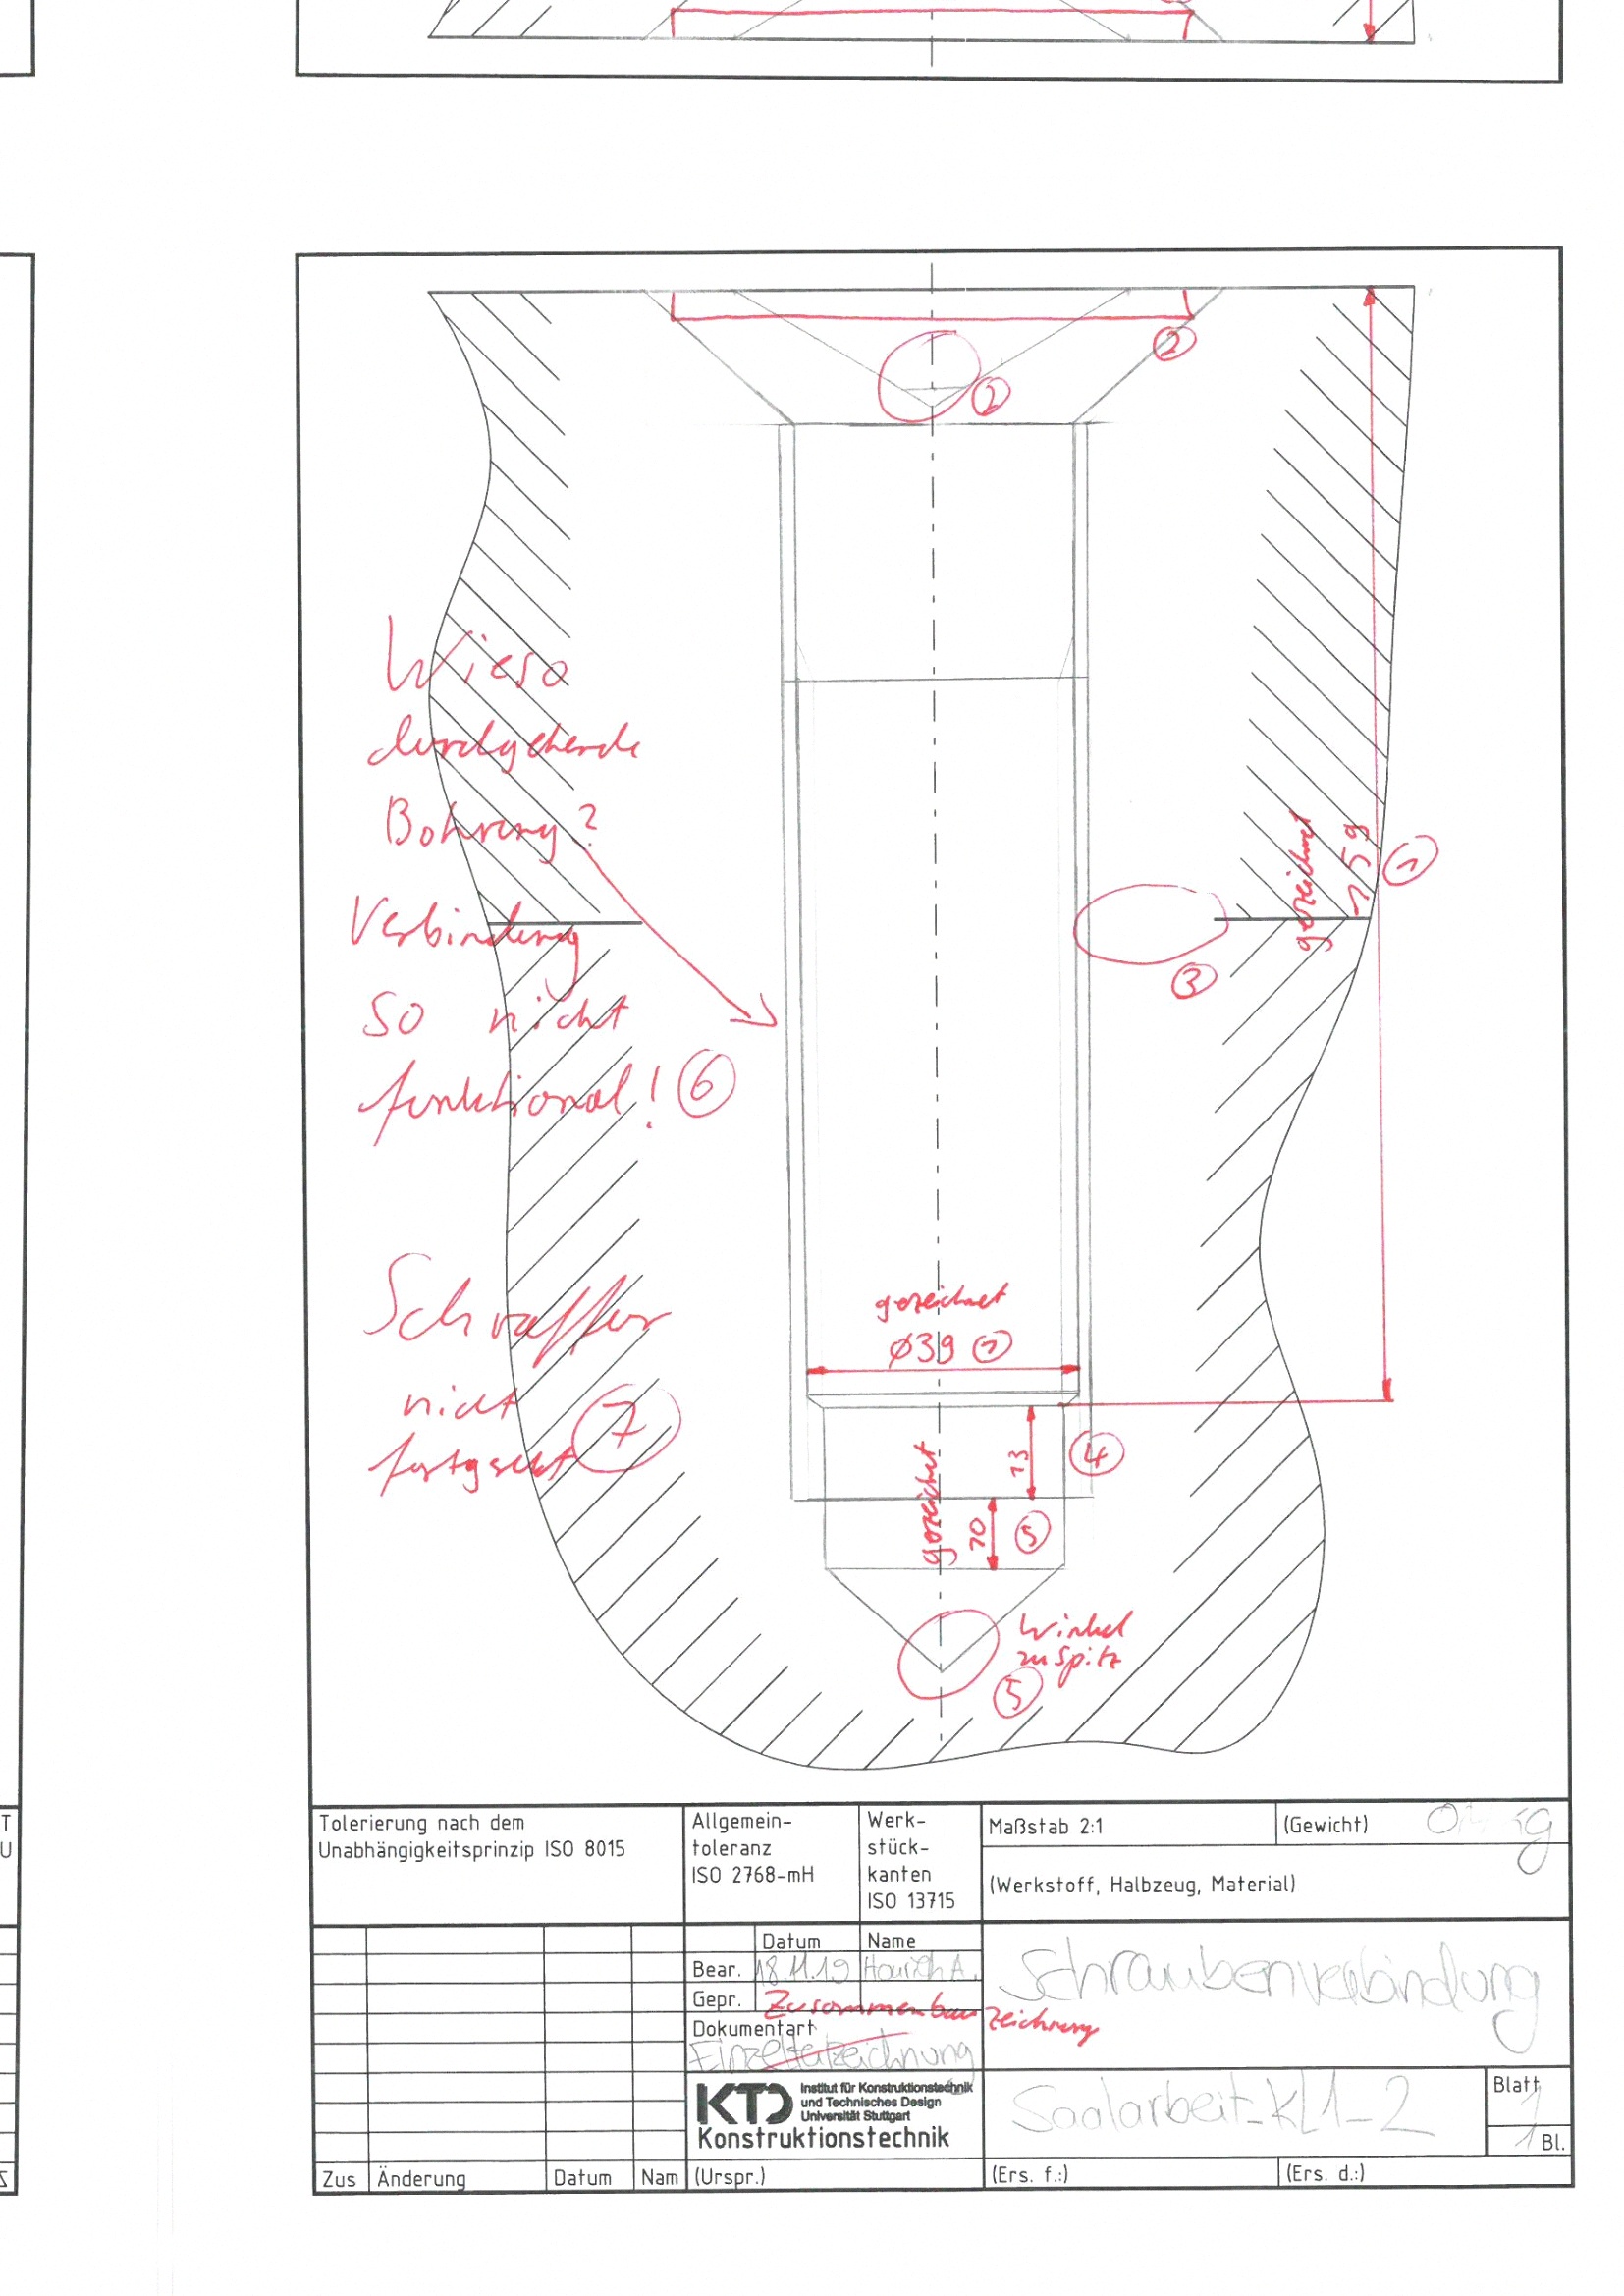 ②
②
Wieso
durchgehende
Bohrung?
Verbindung
so nicht
funktional! ⑥
gezeichnet
159 ①
③
gezeichnet
Ø39 ①
Schraffur
nicht
fortgesetzt ⑦
13 ④
gezeichnet
10 ⑤
Winkel
zu spitz
⑤
T
U
Tolerierung nach dem
Unabhängigkeitsprinzip ISO 8015
Allgemein-
toleranz
ISO 2768-mH
Werk-
stück-
kanten
ISO 13715
Maßstab 2:1
(Gewicht)
(Werkstoff, Halbzeug, Material)
Datum Name
Bear. 18.11.19
Gepr.
Zusammenbauzeichnung
Dokumentart
Einzelteilzeichnung
Schraubenverbindung
KTD Institut für Konstruktionstechnik
und Technisches Design
Universität Stuttgart
Konstruktionstechnik
Saalarbeit_KL1_2
Blatt
1
1 Bl.
Zus Änderung Datum Nam (Urspr.) (Ers. f.:) (Ers. d.:)